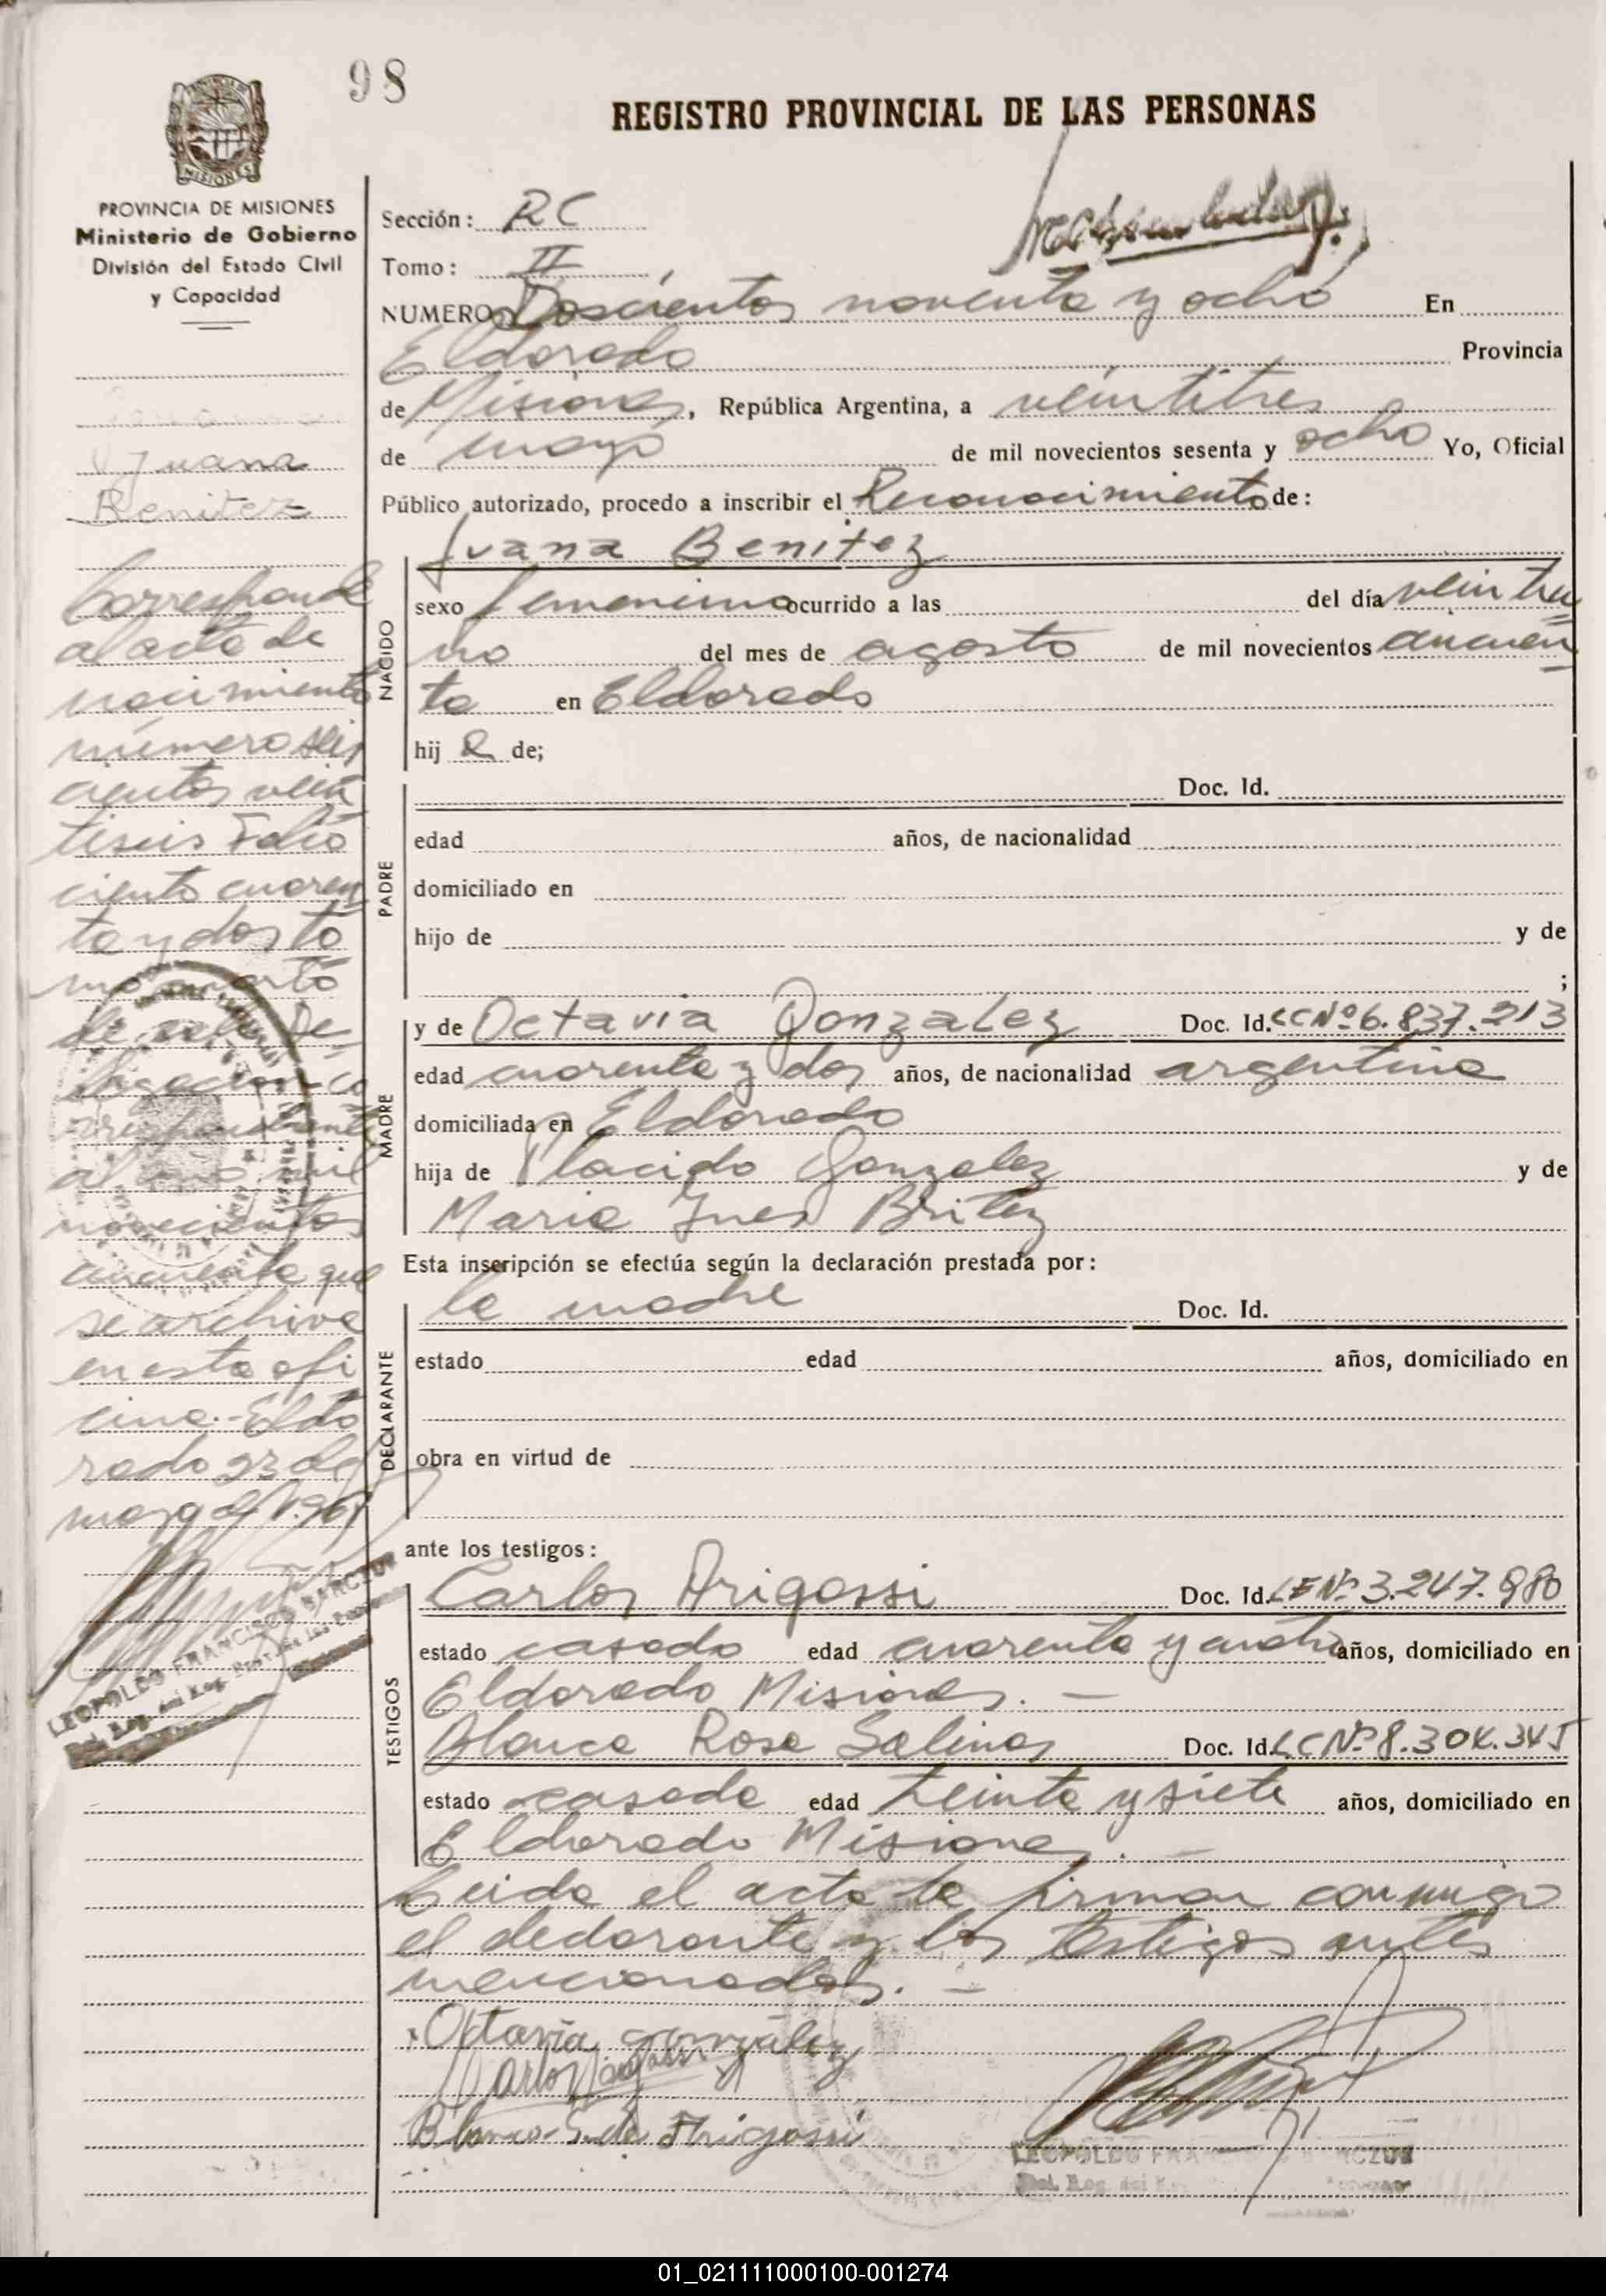 98
REGISTRO PROVINCIAL DE LAS PERSONAS
MISIONES
PROVINCIA DE MISIONES
Ministerio de Gobierno
División del Estado Civil
y Capacidad
Juana
Benitez
Corresponde
al acta de
nacimiento
número seis
cientos vein
tiseis Folio
ciento cuaren
ta y dos to
mo cuarto
de esta De
legacion co
rrespondiente
al año mil
novecientos
cincuenta que
se archiva
en esta ofi
cina.- Eldo
rado 23 de
mayo de 1.968
LEOPOLDO FRANCISCO
Sección: RC
Tomo: II
NUMERO Doscientos noventa y ocho En
Eldorado Provincia
de Misiones, República Argentina, a veintitres
de mayo de mil novecientos sesenta y ocho Yo, Oficial
Público autorizado, procedo a inscribir el Reconocimiento de:
Juana Benitez
NACIDO
sexo femenino ocurrido a las del día veintiu
no del mes de agosto de mil novecientos cincuen
ta en Eldorado
hij a de;
PADRE
Doc. Id.
edad años, de nacionalidad
domiciliado en
hijo de y de
;
MADRE
y de Octavia Gonzalez Doc. Id. LC Nº 6.837.213
edad cuarenta y dos años, de nacionalidad argentina
domiciliada en Eldorado
hija de Placido Gonzalez y de
Maria Ines Britez
Esta inscripción se efectúa según la declaración prestada por:
DECLARANTE
la madre Doc. Id.
estado edad años, domiciliado en
obra en virtud de
ante los testigos:
TESTIGOS
Carlos Arigossi Doc. Id. LE Nº 3.247.980
estado casado edad cuarenta y ocho años, domiciliado en
Eldorado Misiones. —
Blanca Rosa Salinas Doc. Id. LC Nº 8.304.345
estado casada edad treinta y siete años, domiciliado en
Eldorado Misiones. —
Leida el acta la firman conmigo
el declarante y los testigos antes
mencionados. —
Octavia gonzález
Carlos
Blanca S. de Arigossi
LEOPOLDO
01_021111000100-001274